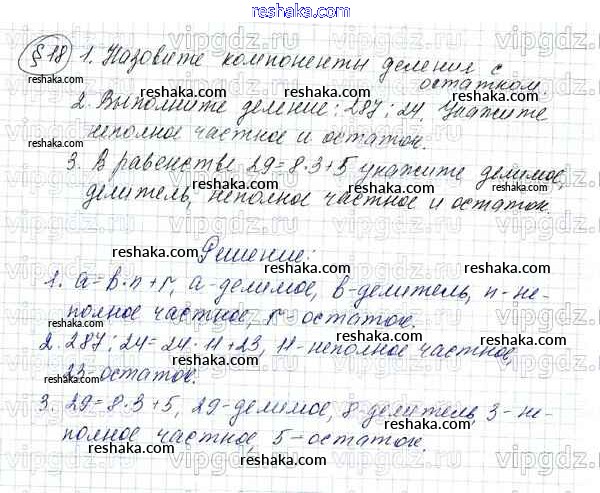 reshaka.com
§18 1. Назовите компоненты деления с
остатком
2. Выполните деление: 287:24. Укажите
неполное частное и остаток.
3. В равенстве 29=8·3+5 укажите делимое,
делитель, неполное частное и остаток.
Решение:
1. a=b·n+r, a-делимое, b-делитель, n-не-
полное частное, r-остаток.
2. 287:24=24·11+23, 11-неполное частное,
23-остаток.
3. 29=8·3+5, 29-делимое, 8-делитель, 3-не-
полное частное, 5-остаток.